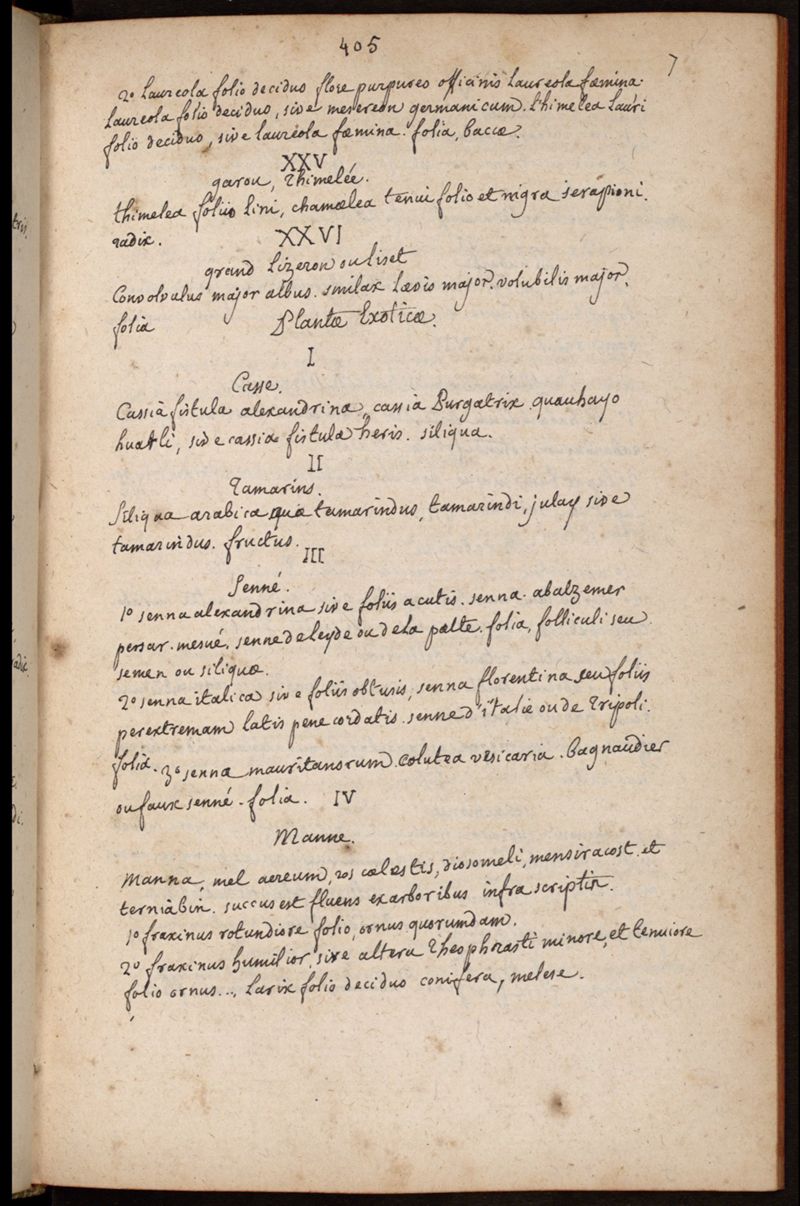 405
7
2o Laureola folio deciduo flore purpureo officinis Laureola fæmina.
Laureola folio deciduo, sive mesereon germanicum. thimelea Lauri
folio deciduo, sive laureola fæmina. folia, baccæ.
XXV
garou, Thimelée.
thimelea foliis lini, chamælea tenui folio et nigra serapioni.
radix.
XXVI
grand Lizeron ou liset
Convolvulus major albus. smilax Lævis major. volubilis major.
folia
Plantæ Exoticæ.
I
Casse.
Cassia fistula alexandrina, cassia Purgatrix quauhayo
huatli, sive cassia fistula heris. siliqua.
II
Tamarins.
Siliqua arabica quæ tamarindus, tamarindi, julay sive
tamarindus. fructus.
III
Senné.
1o senna alexandrina sive foliis acutis. senna. abalzemer
persar. mesué. senne de leyde ou de la palte. folia, folliculi seu
semen ou siliquæ.
2o senna italica sive foliis obtusis, senna florentina seu foliis
per extremam latis pene cordatis. senne d'italie ou de Tripoli.
folia. 3o senna mauritanorum. colutea vesicaria. bagnaudier
ou faux senné. folia. IV
Manne.
Manna, mel aereum, ros cælestis, diosomeli, mensiracost. et
terniabin. succus est fluens ex arboribus infra scriptis.
1o fraxinus rotundiore folio, ornus quorumdam.
2o fraxinus humilior. sive altera Theophrasti minore, et tenuiore
folio ornus... Larix folio deciduo conifera, melese.